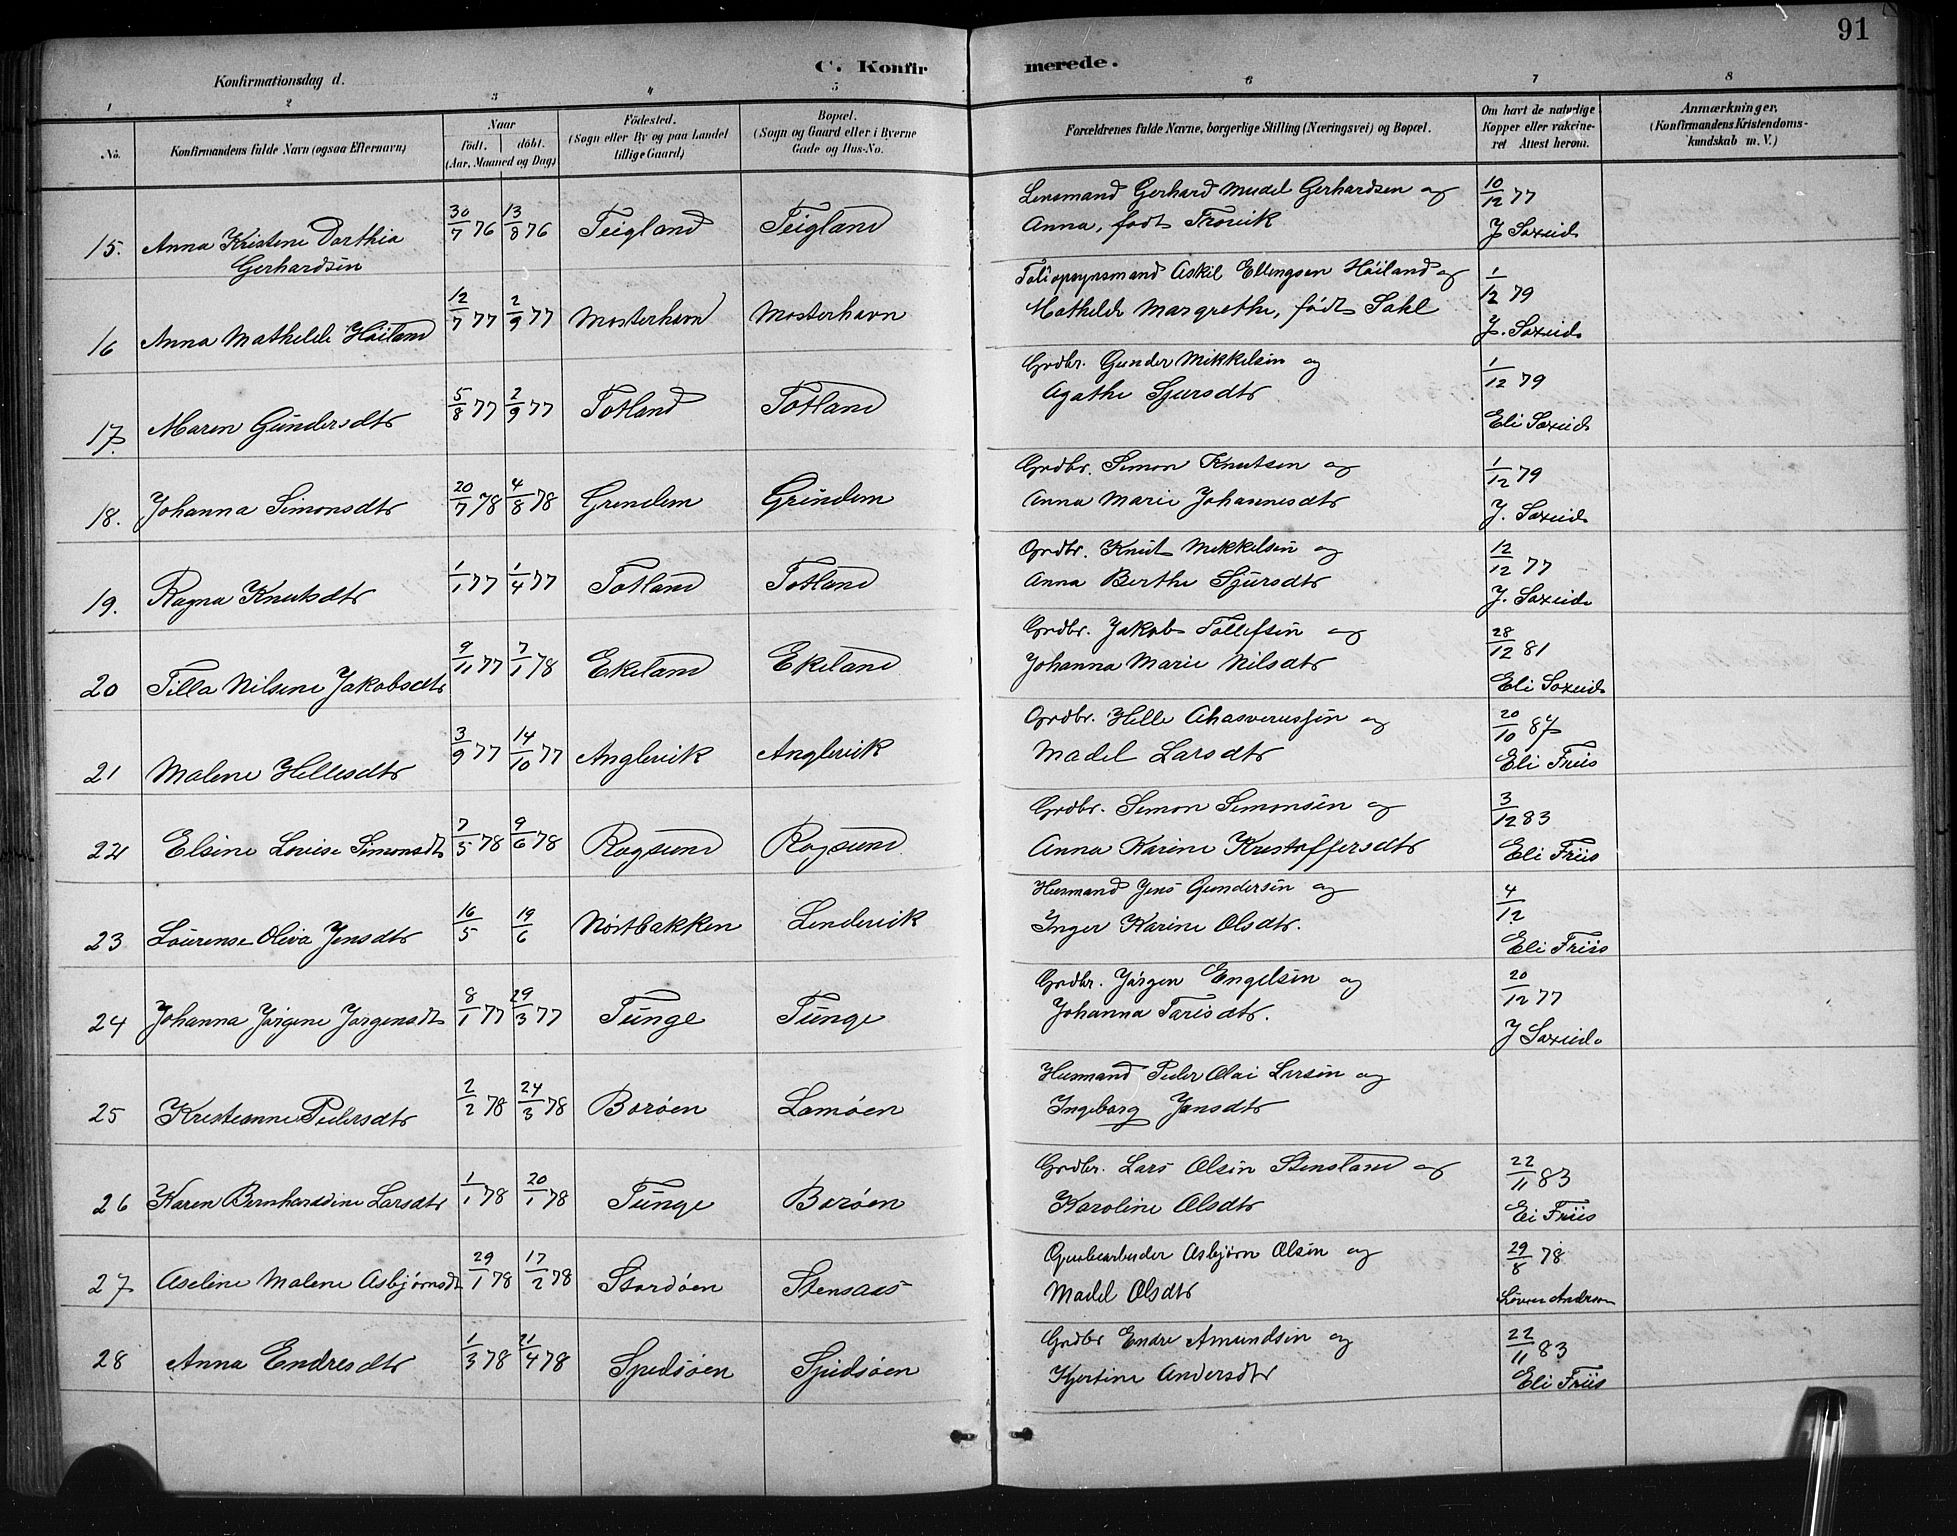 91
C. Konfirmerede.
Konfirmationsdag d.
1 2 3 4 5 6 7 8
No. Konfirmandens fulde Navn (ogsaa Efternavn) Naar født. døbt. (Aar, Maaned og Dag) Fødested. (Sogn eller By og paa Landet tillige Gaard) Bopæl. (Sogn og Gaard eller i Byerne Gade og Hus-No. Forældrenes fulde Navne, borgerlige Stilling (Næringsvei) og Bopæl. Om havt de naturlige Kopper eller vakcineret Attest herom. Anmærkninger. (Konfirmandens Kristendomskundskab m. V.)
15. Anna Kristene Dorthia Gerhardsen 30/7 76 13/8 76 Teigland Teigland Lensmand Gerhard Mudel Gerhardsen og Anna, født Trovik 10/12 77 J Saxeid
16 Anna Mathilde Høiland 12/7 77 2/9 77 Mosterhavn Mosterhavn Toldopsynsmand Askil Ellingsen Høiland og Mathilde Margrethe, født Dahl 1/12 79 J. Saxeid
17. Maren Gundersdtr 5/8 77 2/9 77 Totland Totland Grdbr. Gunder Mikkelsen og Agathe Sjursdtr 1/12 79 Eli Saxeid
18. Johanna Simonsdtr 20/7 78 4/8 78 Grindem Grindem Grdbr. Simon Knutsen og Anna Marie Johannesdtr 1/12 79 J. Saxeid
19. Ragna Knutsdtr 1/1 77 1/4 77 Totland Totland Grdbr. Knut Mikkelsen og Anna Berthe Sjursdtr 12/12 77 J. Saxeid
20 Tilla Nilsine Jakobsdtr 9/11 77 7/1 78 Ekeland Ekeland Grdbr. Jakob Tollefsen og Johanna Marie Nilsdtr 28/12 81 Eli Saxeid
21 Malene Hellesdtr 3/9 77 14/10 77 Anglevik Anglevik Grdbr. Helle Ahasverussen og Madel Larsdtr 20/10 87 Eli Friis
22 Elsine Lovise Simonsdtr 7/5 78 9/6 78 Rogsund Rogsund Grdbr. Simon Simonsen og Anna Karine Kristoffersdtr 3/12 83 Eli Friis
23 Laurense Oliva Jensdtr 16/5 19/6 Nøstbakken Lindervik Husmand Jens Gundersen og Inger Karine Olsdtr. 4/12 Eli Friis
24 Johanna Jørgine Jørgensdtr 8/1 77 29/3 77 Tunge Tunge Grdbr. Jørgen Engelsen og Johanna Tarisdtr. 20/12 77 J Saxeid
25 Kristianne Pedersdtr 2/2 78 24/3 78 Borøen Lamøen Husmand Peder Olai Larsen og Ingeborg Jensdtr
26 Karen Bernhardine Larsdtr 1/1 78 20/1 78 Tunge Borøen Grdbr. Lars Olsen Stensland og Karoline Olsdtr 22/11 83 Eli Friis
27 Aseline Malene Asbjørnsdt 29/1 78 17/2 78 Stordøen Stensaas Grubearbeider Asbjørn Olsen og Madel Olsdtr 29/8 78 Andersen
28 Anna Endresdtr 1/3 78 21/4 78 Spidsøen Spidsøen Grdbr Endre Amundsen og Kjertine Andersdtr 22/11 83 Eli Friis